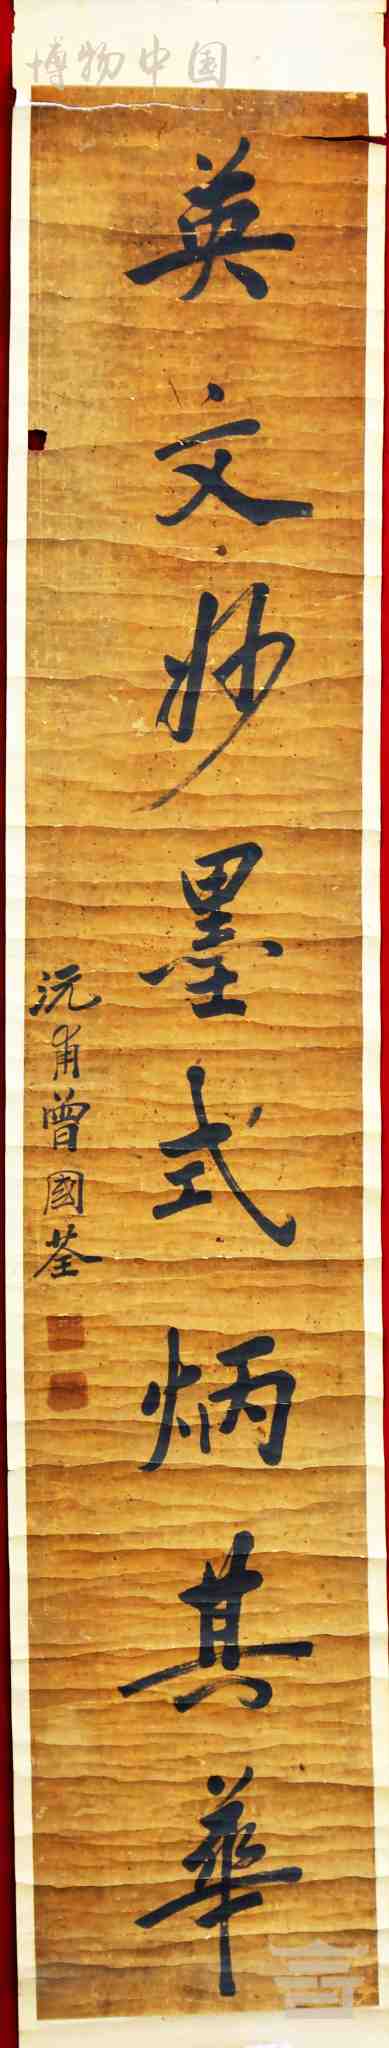 博物中国
英文妙墨式炳其華
沅甫曾國荃